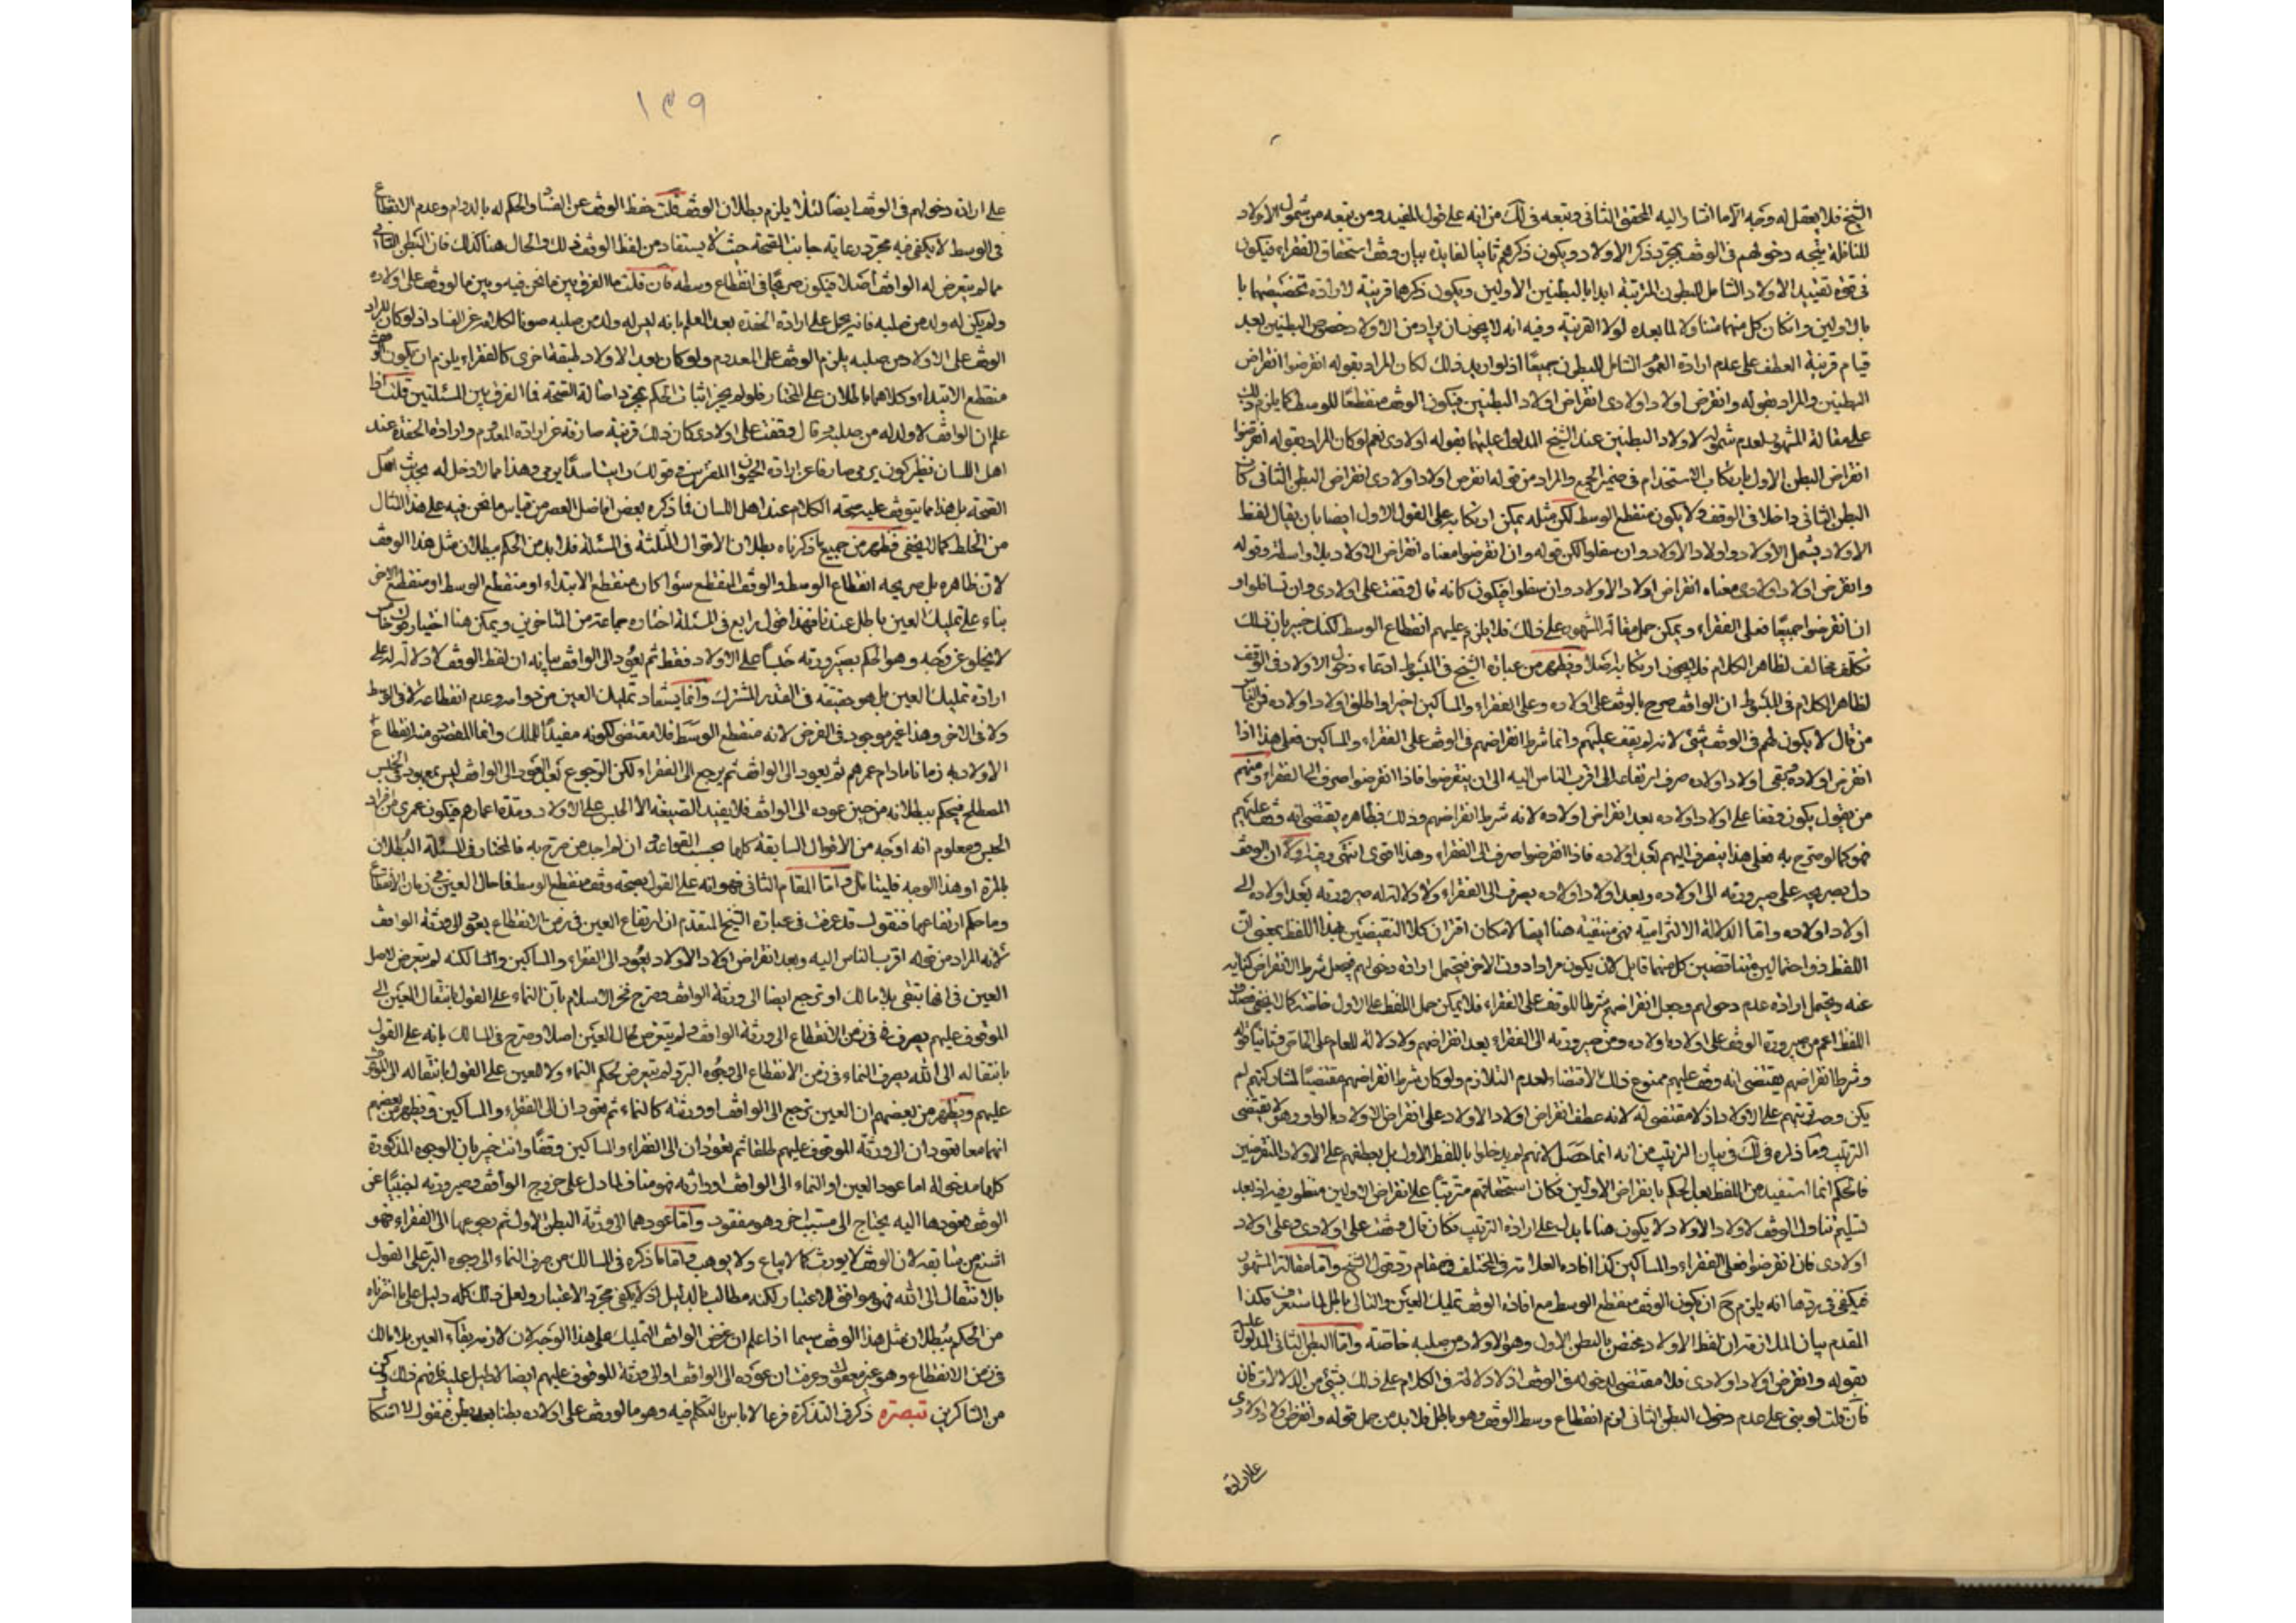 الشيخ فلا يعقل له وجه الا ما اشار اليه المحقق الثاني وتبعه في لك من انه على قول المفيد ومن تبعه من شمول الاولاد
للنافلة يتجه دخولهم في الوقف بمجرد ذكر الاولاد ويكون ذكرهم ثانيا لفايدة بيان وقت استحقاق الفقراء فيكون
في قوة تقييد الاولاد الشامل للبطون المرتبة ابدا بالبطنين الاولين ويكون ذكرهما قرينة لارادة تخصيصهما با
بالاولين وان كان كل منهما متناولا لما بعده لولا القرينة وفيه انه لا يجوز ان يراد من الاولاد خصوص البطنين بعد
قيام قرينة العطف على عدم ارادة العموم الشامل للبطون جميعا اذ لو اريد ذلك لكان المراد بقوله انقرضوا انقراض
البطنين والمراد بقوله وانقرض اولاد اولادي انقراض اولاد البطنين فيكون الوقف منقطعا للوسط كما يلزم ذلك
على مقالة المشهور لعدم شموله لاولاد البطنين عند الشيخ المدلول عليهما بقوله اولادي نعم لو كان المراد بقوله انقرضوا
انقراض البطن الاول بارتكاب الاستخدام في ضمير الجمع والمراد من قوله انقرض اولاد اولادي انقراض البطن الثاني كان
البطن الثاني داخلا في الوقف ولا يكون منقطع الوسط لكن مثله يمكن ارتكابه على القول الاول ايضا بان يقال لفظ
الاولاد يشمل الاولاد واولاد الاولاد وان سفلوا لكن قوله وان انقرضوا معناه انقراض الاولاد بلا واسطة وقوله
وانقرض اولاد اولادي معناه انقراض اولاد الاولاد وان سفلوا فيكون كانه قال وقفت على اولادي وان تسافلوا و
ان انقرضوا جميعا فعلى الفقراء ويمكن حمل مقالة المشهور على ذلك فلا يلزم عليهم انقطاع الوسط لكنك خبير بان ذلك
تكلف مخالف لظاهر الكلام فلا يجوز ارتكابه اصلا ويظهر من عبارة الشيخ في المبسوط ادعاء دخول الاولاد في الوقف
لظاهر الكلام في المبسوط ان الواقف صرح بالوقف على اولاده وعلى الفقراء والمساكين اخيرا واطلق اولاد اولاده فمن الناس
من قال لا يكون لهم في الوقف شيء لانه لم يقف عليهم وانما شرط انقراضهم في الوقف على الفقراء والمساكين فعلى هذا اذا
انقرض اولاده وبقي اولاد اولاده صرف ارتفاعه الى اقرب الناس اليه الى ان ينقرضوا فاذا انقرضوا صرف الى الفقراء ومنهم
من يقول يكون وقفا على اولاد اولاده بعد انقراض اولاده لانه شرط انقراضهم وذلك بظاهره يقتضي انه وقف عليهم
فهو كما لو صرح به فعلى هذا ينصرف اليهم بعد اولاده فاذا انقرضوا صرف الى الفقراء وهذا اقوى انتهى وفيه اولا ان الوقف
دل بصريحه على صيرورته الى اولاده وبعد اولاد اولاده يصرف الى الفقراء ولا دلالة له صيرورته بعد اولاده الى
اولاد اولاده واما الدلالة الالتزامية فهي منتفية هنا ايضا لامكان اقتران كلا النقيضين بهذا اللفظ بمعنى ان
اللفظ ذو احتمالين متناقضين كل منهما قابل لان يكون مرادا دون الاخر فيحتمل ارادة دخولهم فيجعل شرط الانقراض كناية
عنه ويحتمل ارادة عدم دخولهم وجعل انقراضهم شرطا للوقف على الفقراء فلا يمكن حمل اللفظ على الاول خاصة كما لا يخفى فصدق
اللفظ اعم من صيرورة الوقف على اولاد اولاده ومن صيرورته الى الفقراء بعد انقراضهم ولا دلالة للعام على الخاص وثانيا قوله
وشرط انقراضهم يقتضي انه وقف عليهم ممنوع ذلك الاقتضاء لعدم التلازم ولو كان شرط انقراضهم مقتضيا لمشاركتهم لم
يكن وجه ترتبهم على الاولاد اذ لا مقتضى له لانه عطف انقراض اولاد الاولاد على انقراض الاولاد بالواو وهو لا يقتضي
الترتيب وما ذكره في لك في بيان الترتيب من انه انما حصل لانهم لم يدخلوا باللفظ الاول بل بعطفهم على الاولاد المنقرضين
فالحكم انما استفيد من اللفظ بعد الحكم بانقراض الاولين فكان استحقاقهم مترتبا على انقراض الاولين منظور فيه اذ بعد
تسليم تناول الوقف لاولاد الاولاد لا يكون هنا ما يدل على ارادة الترتيب فكان قال وقفت على اولادي وعلى اولاد
اولادي فان انقرضوا فعلى الفقراء والمساكين كذا افاده العلامة في المختلف في مقام رد قول الشيخ واما مقالة المشهور
فيكفي في ردها انه يلزم ح ان يكون الوقف منقطع الوسط مع افادة الوقف تمليك العين والتالي باطل لما ستعرف فكذا
المقدم بيان الملازمة ان لفظ الاولاد يختص بالبطن الاول وهو الاولاد من صلبه خاصة واما البطن الثاني المدلول عليه
بقوله وانقرض اولاد اولادي فلا مقتضى لدخوله في الوقف اذ لا دلالة في الكلام على ذلك بشيء من الدلالات فان
فان قلت لو بني على عدم دخول البطن الثاني لزم انقطاع وسط الوقف وهو باطل فلا بد من حمل قوله وانقرض اولاد اولادي
على ارادة
١٣٩
على ارادة دخولهم في الوقف ايضا لئلا يلزم بطلان الوقف قلت حفظ الوقف عن الفساد والحكم له بالدوام وعدم الانقطاع
في الوسط لا يكفي فيه مجرد رعاية جانب الصحة حيث لا يستفاد من لفظ الوقف ذلك والحال هنا كذلك فان البطن الثاني
مما لم يتعرض له الواقف اصلا فيكون صريحا في انقطاع وسطه فان قلت ما الفرق بين ما نحن فيه وبين ما لو وقف على اولاده
ولم يكن له ولد من صلبه فانه يحمل على ارادة الحفدة بعد العلم بانه ليس له ولد من صلبه صونا لكلامه عن الفساد اذ لو كان المراد
الوقف على الاولاد من صلبه يلزم الوقف على المعدوم ولو كان بعد الاولاد طبقة اخرى كالفقراء يلزم ان يكون
منقطع الابتداء وكلاهما باطلان على المختار فلو لم يجز اثبات الحكم بمجرد اصالة الصحة فما الفرق بين المسئلتين قلت اذا
علم ان الواقف لا ولد له من صلبه وقال وقفت على اولادي كان ذلك قرينة صارفة عن ارادة المعدوم وارادة الحفدة عند
اهل اللسان نظير كون يرمي صارفا عن ارادة الحيوان المفترس في قولك رايت اسدا يرمي وهذا مما لا دخل له بحديث اصل
الصحة بل هذا مما يتوقف عليه صحة الكلام عند اهل اللسان فما ذكره بعض افاضل العصر من قياس ما نحن فيه على هذا المثال
من الخلط كما لا يخفى فظهر من جميع ما ذكرناه بطلان الاقوال الثلثة في المسئلة فلا بد من الحكم ببطلان مثل هذا الوقف
لان ظاهره بل صريحه انقطاع الوسط والوقف المنقطع سواء كان منقطع الابتداء او منقطع الوسط او منقطع الاخر
بناء على تمليك العين باطل عندنا فهذا قول رابع في المسئلة اختاره جماعة من المتاخرين ويمكن هنا اختيار قول خامس
لا يخلو عن وجه وهو الحكم بصيرورته حبسا على الاولاد فقط ثم يعود الى الواقف بيانه ان لفظ الوقف لا دلالة له على
ارادة تمليك العين بل هو حقيقة في القدر المشترك وانما يستفاد تمليك العين من دوامه وعدم انقطاعه لا في الوسط
ولا في الاخر وهذا غير موجود في الفرض لانه منقطع الوسط فلا مقتضى لكونه مفيدا للملك وانما المقصود منه انتفاع
الاولاد به زمانا مادام عمرهم ثم يعود الى الواقف ثم يرجع الى الفقراء لكن الرجوع بعد العود الى الواقف ليس بمعهود في الحبس
المصطلح فيحكم ببطلانه من حين عوده الى الواقف فلا يفيد الصيغة الا الحبس على الاولاد ومدة اعمارهم فيكون عمرى من افراد
الحبس ومعلوم انه اوجه من الاقوال السابقة كلها بحسب القواعد ان لم اجد من صرح به فالمختار في المسئلة البطلان
بالمرة او هذا الوجه فليتامل واما المقام الثاني فهو انه على القول بصحة وقف منقطع الوسط فما حال العين في زمان الانقطاع
وما حكم ارتفاعها فنقول قد عرفت في عبارة الشيخ المتقدم ان ارتفاع العين في زمن الانقطاع يعود الى ورثة الواقف
لانه المراد من قوله اقرب الناس اليه وبعد انقراض اولاد الاولاد يعود الى الفقراء والمساكين ولكنه لم يتعرض لاصل
العين في انها تبقى بلا مالك او ترجع ايضا الى ورثة الواقف وصرح فخر الاسلام بان النماء على القول بانتقال العين الى
الموقوف عليهم يصرف في زمن الانقطاع الى ورثة الواقف ولم يتعرض لحال العين اصلا وصرح في المسالك بانه على القول
بانتقاله الى الله يصرف النماء في زمن الانقطاع الى وجوه البر ولم يتعرض لحكم النماء ولا العين على القول بانتقاله الى الموقوف
عليهم ويظهر من بعضهم ان العين ترجع الى الواقف او ورثته كالنماء ثم تعودان الى الفقراء والمساكين ويظهر من بعضهم
انهما معا تعودان الى ورثة الموقوف عليهم طلقا ثم تعودان الى الفقراء والمساكين وقفا وانت خبير بان الوجوه المذكورة
كلها مدخولة اما عود العين او النماء الى الواقف او وارثه فهو مناف لما دل على خروج الواقف وصيرورته اجنبيا عن
الوقف فعودها اليه يحتاج الى سبب اخر وهو مفقود واما عودهما الى ورثة البطن الاول ثم رجوعها الى الفقراء فهو
اشنع من سابقه لان الوقف لا يورث كما لا يباع ولا يوهب واما ما ذكره في المسالك من صرف النماء الى وجوه البر على القول
بالانتقال الى الله فهو موافق للاعتبار لكنه مطالب بالدليل اذ لا يكفي مجرد الاعتبار ولعل ذلك كله دليل على ما اخترناه
من الحكم ببطلان مثل هذا الوقف سيما اذا علم ان غرض الواقف التمليك على هذا الوجه لان لازمه بقاء العين بلا مالك
في زمن الانقطاع وهو غير معقول وعرفت ان عوده الى الواقف او الى ورثة الموقوف عليهم ايضا لا دليل عليه فافهم ذلك وكن
من الشاكرين تبصرة ذكر في التذكرة فرعا لا باس بالتكلم فيه وهو ما لو وقف على اولاده بطنا بعد بطن فنقول لا اشكال